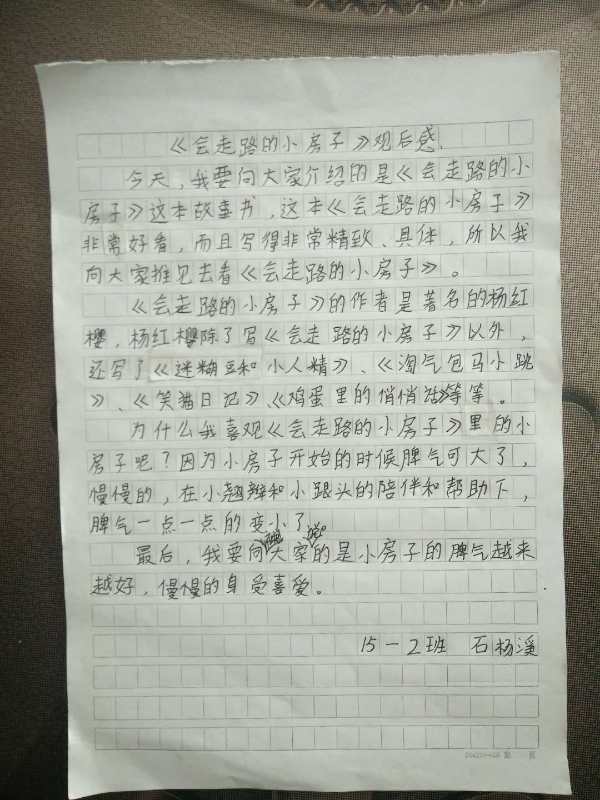 《会走路的小房子》观后感.
今天,我要向大家介绍的是《会走路的小
房子》这本故事书,这本《会走路的小房子》
非常好看,而且写得非常精致、具体,所以我
向大家推见去看《会走路的小房子》。
《会走路的小房子》的作者是著名的杨红
樱,杨红樱除了写《会走路的小房子》以外,
还写了《迷糊豆和小人精》、《淘气包马小跳
》、《笑猫日记》、《鸡蛋里的悄悄话》等等。
为什么我喜观《会走路的小房子》里的小
房子吧?因为小房子开始的时候脾气可大了,
慢慢的,在小翘辫和小跟头的陪伴和帮助下,
脾气一点一点的变小了。
最后,我要向大家说的是小房子的脾气越来
越好,慢慢的身受喜爱。
15-2班 石杨溪